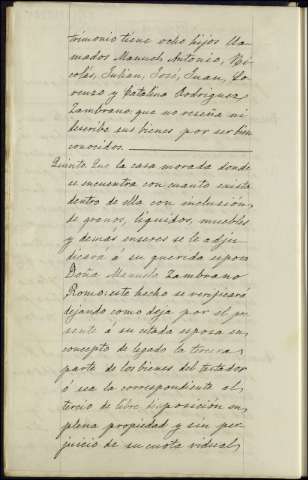 trimonio tiene ocho hijos lla-
mados Manuel, Antonio, Ni-
colás, Julian, José, Juan, Lo-
renzo y Catalina Rodriguez
Zambrano: que no reseña ni
describe sus bienes por ser bien
conocidos.
Quinto. Que la casa morada donde
se encuentra con cuanto exista
dentro de ella con inclusión
de granos, líquidos, muebles
y demas enseres se le adju-
dicará á su querida esposa
Doña Manuela Zambrano
Romo: esto hecho se verificará
dejando como deja por el pre-
sente á su citada esposa en
concepto de legado la tercera
parte de los bienes del testador
ó sea la correspondiente al
tercio de libre disposición en
plena propiedad y sin per-
juicio de su cuota vidual,